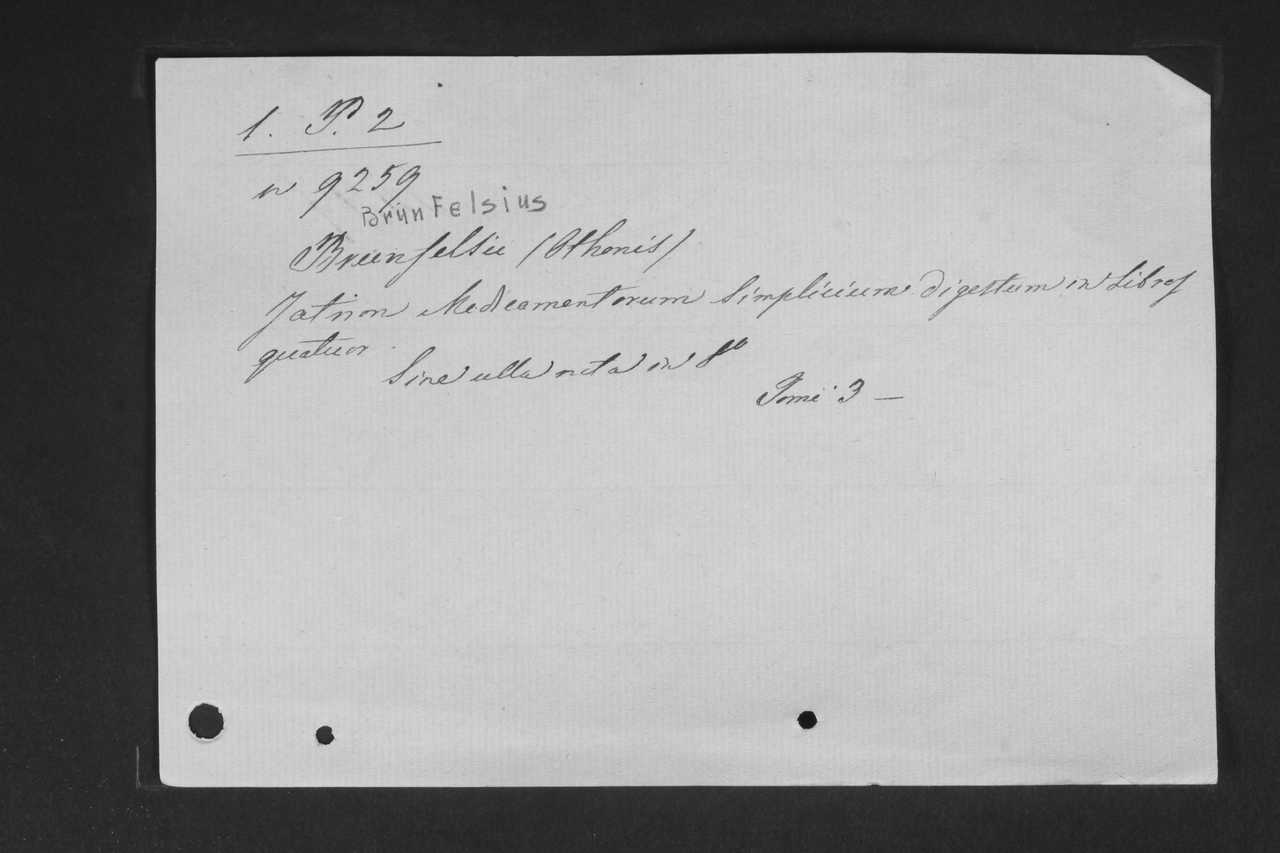 1. P. 2
n 9259
BrünFelsius
Brunfelsii (Othonis)
Jatrion Medicamentorum Simplicium digestum in Libros
quatuor.
Sine ulla nota in 8º
Tomi 3 —